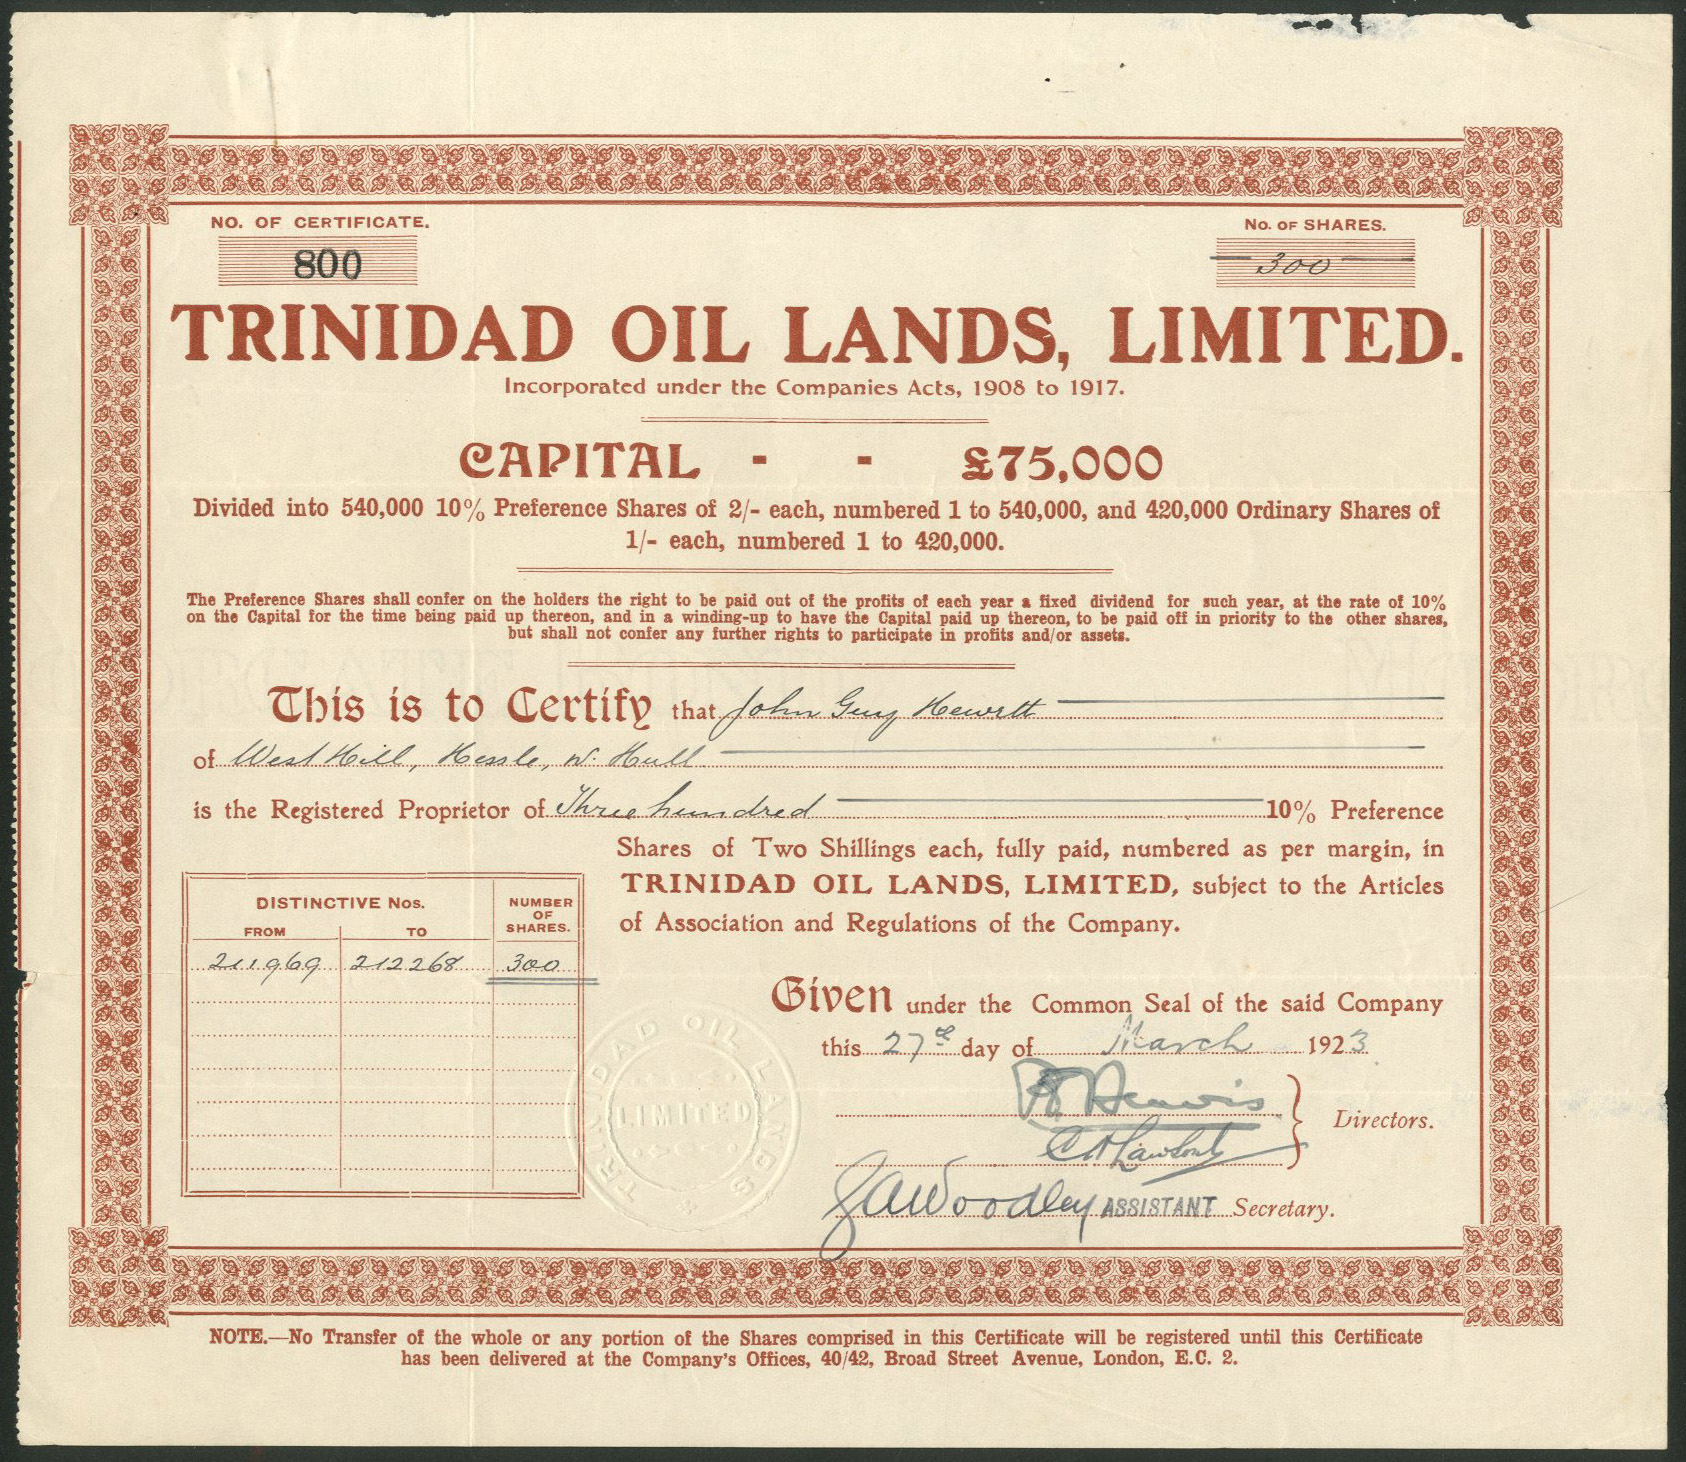 NO. OF CERTIFICATE.
No. OF SHARES.
800
300
TRINIDAD OIL LANDS, LIMITED.
Incorporated under the Companies Acts, 1908 to 1917.
CAPITAL - - £75,000
Divided into 540,000 10% Preference Shares of 2/- each, numbered 1 to 540,000, and 420,000 Ordinary Shares of
1/- each, numbered 1 to 420,000.
The Preference Shares shall confer on the holders the right to be paid out of the profits of each year a fixed dividend for such year, at the rate of 10%
on the Capital for the time being paid up thereon, and in a winding-up to have the Capital paid up thereon, to be paid off in priority to the other shares,
but shall not confer any further rights to participate in profits and/or assets.
This is to Certify that John Guy Hewett
of West Hill, Hessle, Nr. Hull
is the Registered Proprietor of Three hundred 10% Preference
Shares of Two Shillings each, fully paid, numbered as per margin, in
TRINIDAD OIL LANDS, LIMITED, subject to the Articles
of Association and Regulations of the Company.
DISTINCTIVE Nos.
NUMBER OF SHARES.
FROM TO
211969 212268 300
Given under the Common Seal of the said Company
this 27th day of March 1923
Directors.
GAWoodley ASSISTANT Secretary.
TRINIDAD OIL LANDS
LIMITED
NOTE.—No Transfer of the whole or any portion of the Shares comprised in this Certificate will be registered until this Certificate
has been delivered at the Company's Offices, 40/42, Broad Street Avenue, London, E.C. 2.